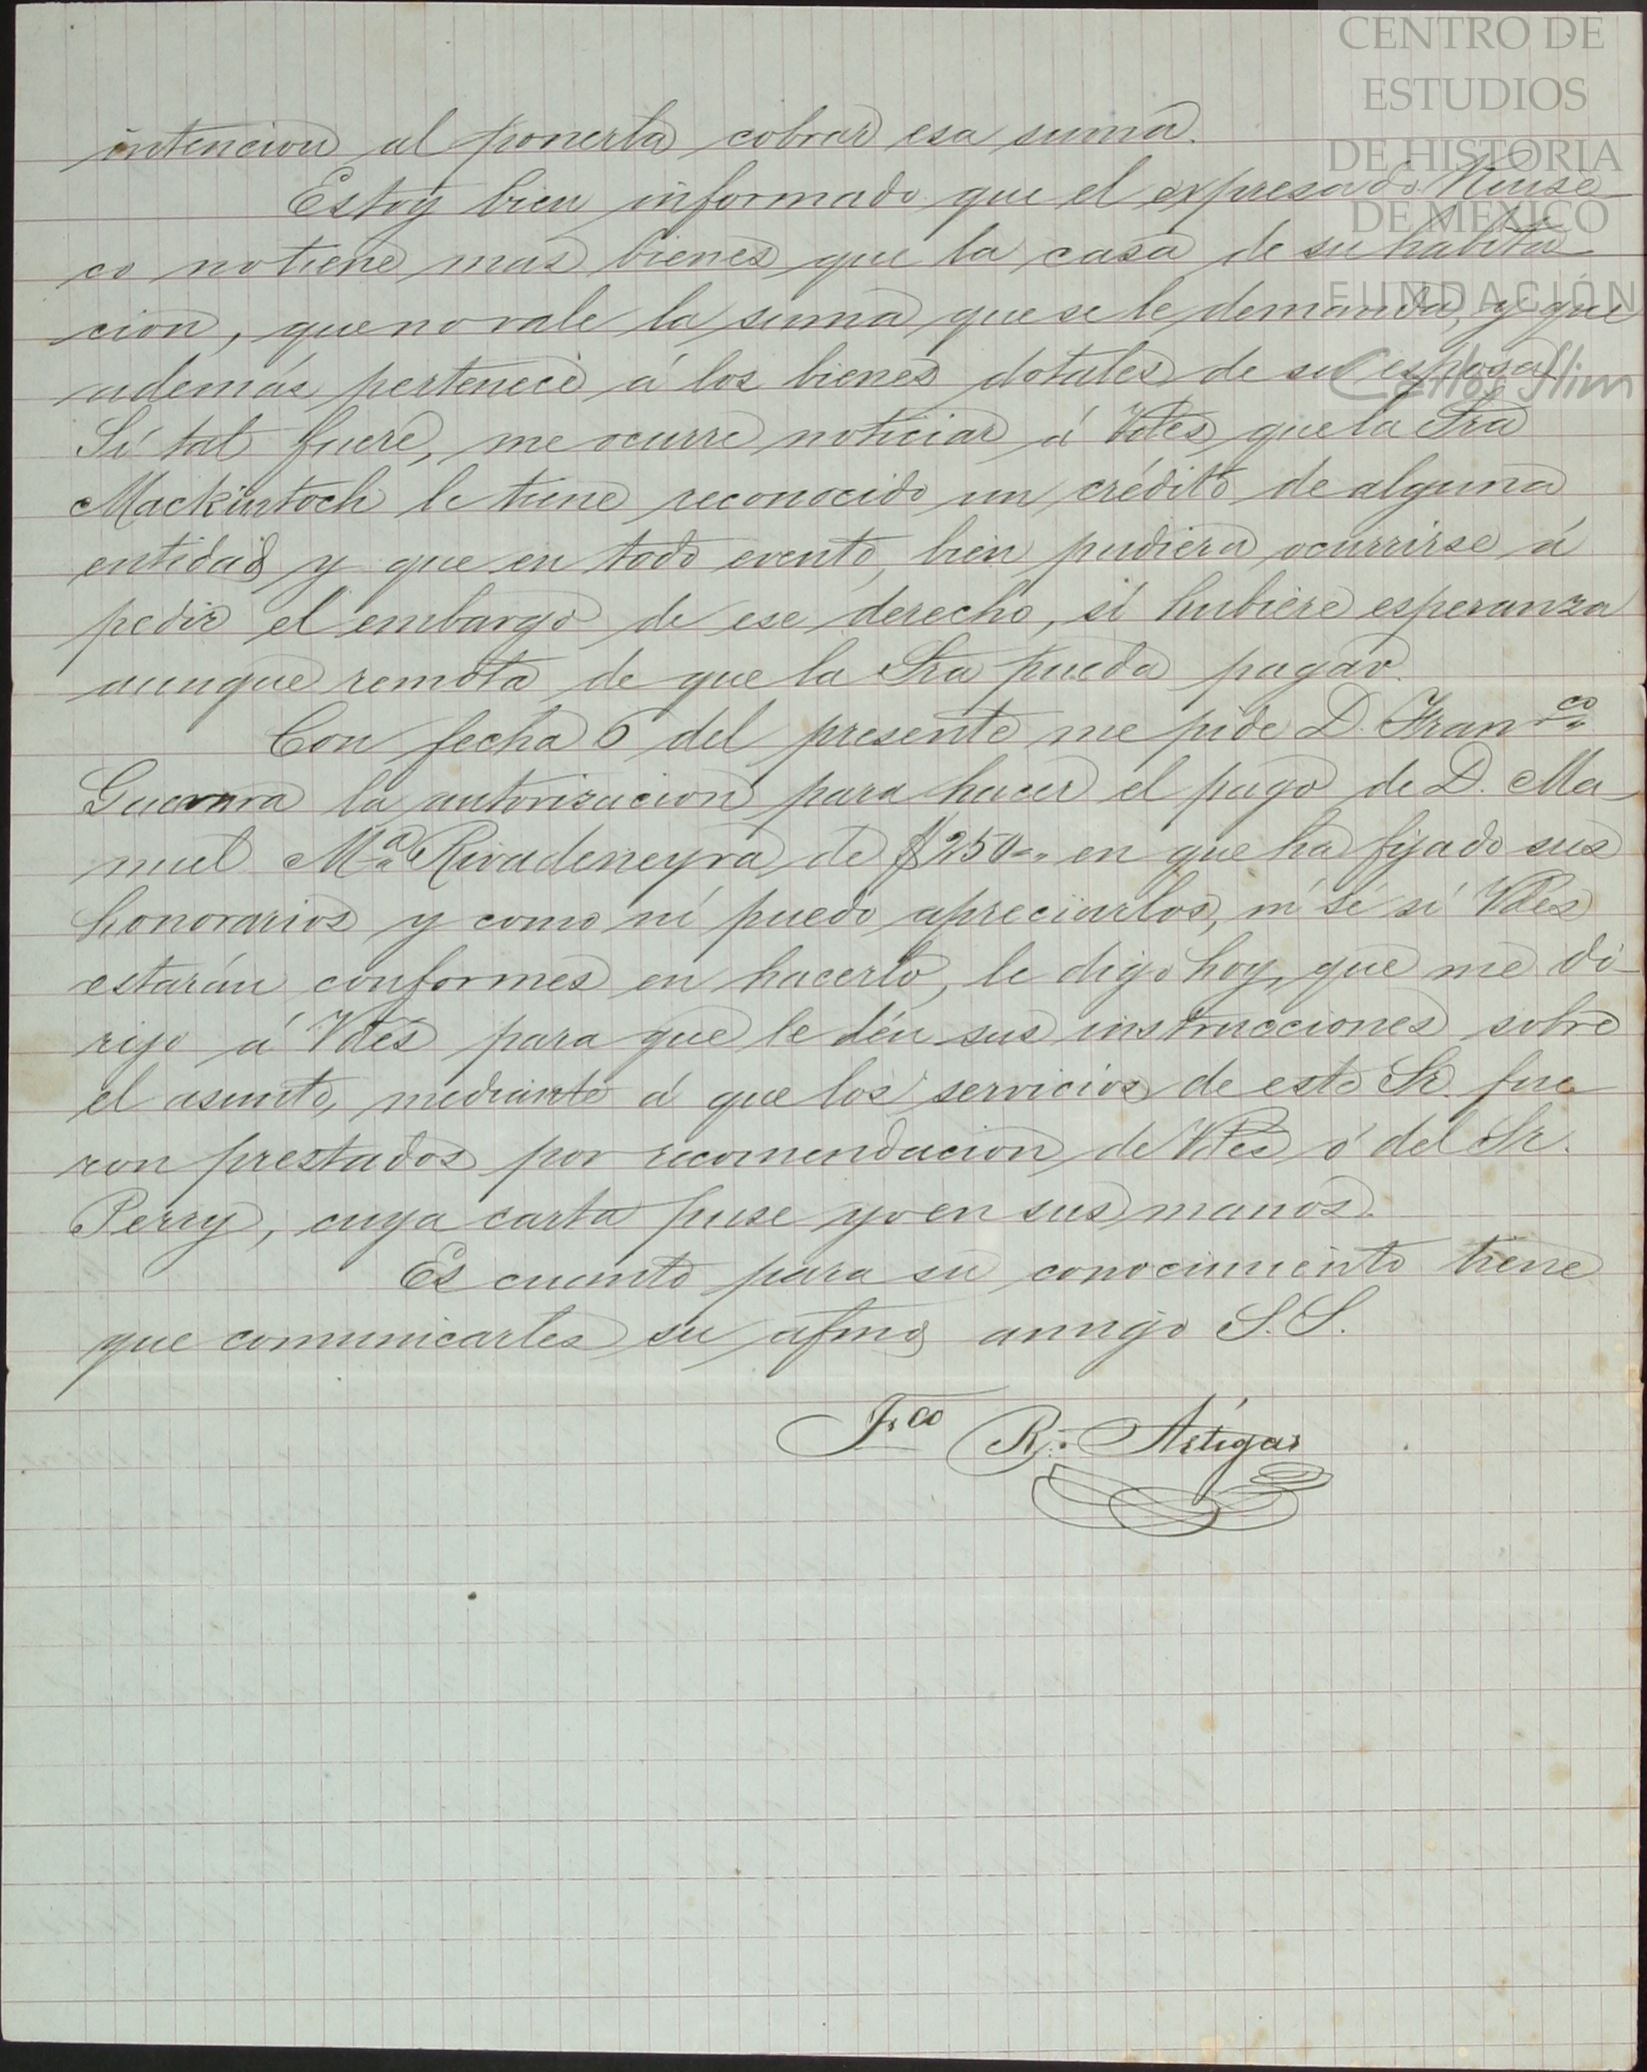 CENTRO DE
ESTUDIOS
DE HISTORIA
DE MEXICO
FUNDACIÓN
Carlos Slim
intencion al ponerla cobrar esa suma.
Estoy bien informado que el expresado
co no tiene mas bienes que la casa de su habita
cion, que no vale la suma que se le demanda, y que
además pertenece á los bienes dotales de su esposa
Sí tal fuere, me ocurre noticiar á Vdes, que la Sra
Mackintoch le tiene reconocido un crédito de alguna
entidad y que en todo evento, bien pudiera ocurrirse á
pedir el embargo de ese derecho, sí hubiere esperanza
aunque remota de que la Sra pueda pagar.
Con fecha 6 del presente me pide D. Franco
Guerrera la autorizacion para hacer el pago de D. Ma
nuel Ma Rivadeneyra de $250.. en que ha fijado sus
honorarios y como ni puedo apreciarlos, ni sé sí Vdes
estarán conformes en hacerlo, le digo hoy, que me di-
rijo á Vdes para que le dén sus instrucciones sobre
el asunto, mediante á que los servicios de este Sr. fue
ron prestados por recomendacion de Vdes ó del Sr.
Perry, cuya carta puse yo en sus manos.
Es cuanto para su conocimiento tiene
que comunicarles su afmo amigo S.S.
Fco R. Artigas